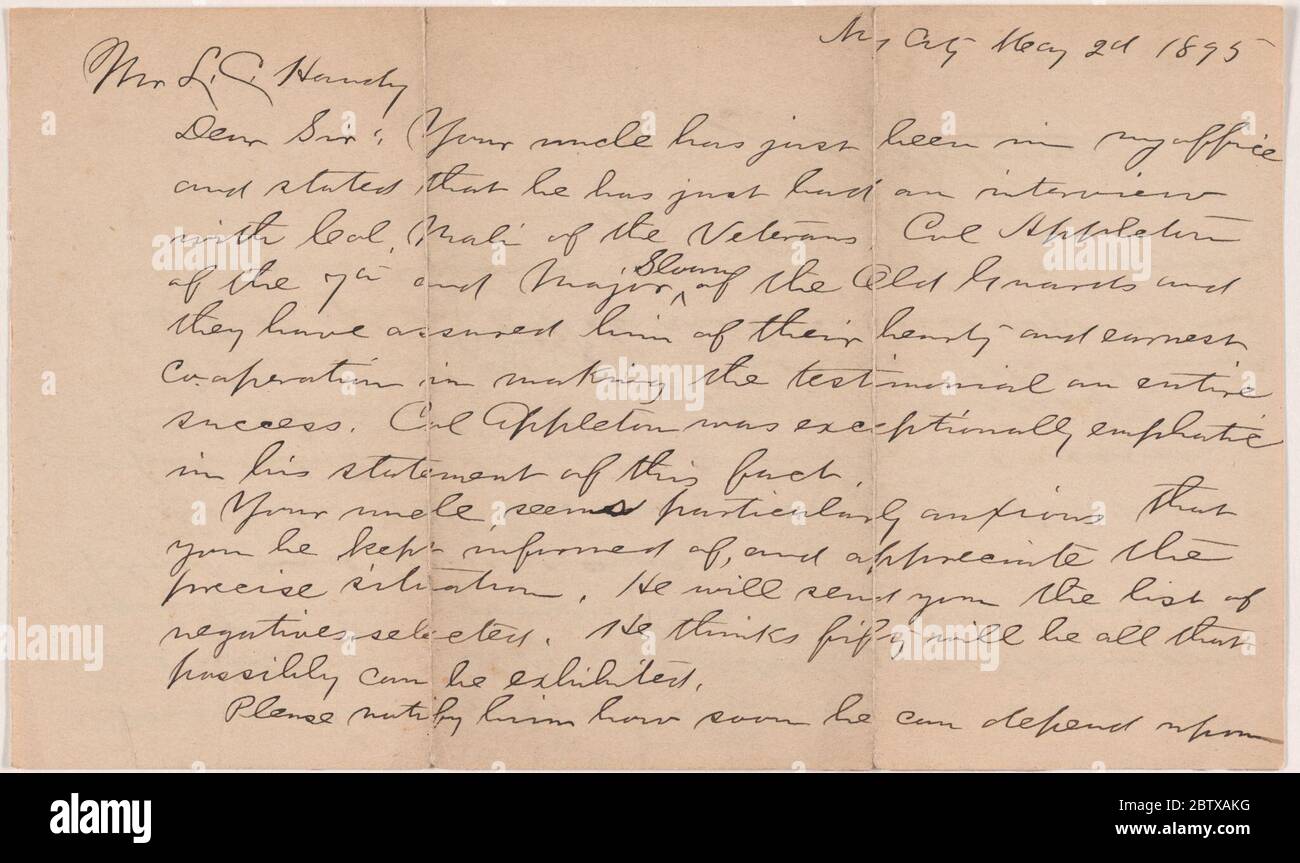 Ny City May 2d 1895
Mr L. C. Handy
Dear Sir: Your uncle has just been in my office
and stated that he has just had an interview
with Col. Mali of the Veterans, Col Appleton
of the 7th and Major Sloan of the Old Guards and
they have assured him of their hearty and earnest
co-operation in making the testimonial an entire
success. Col Appleton was exceptionally emphatic
in his statement of this fact.
Your uncle seems particularly anxious that
you be kept informed of, and appreciate the
precise situation. He will send you the list of
negatives selected. He thinks fifty will be all that
possibly can be exhibited.
Please notify him how soon he can depend upon
alamy
Image ID: 2BTXAKG
www.alamy.com